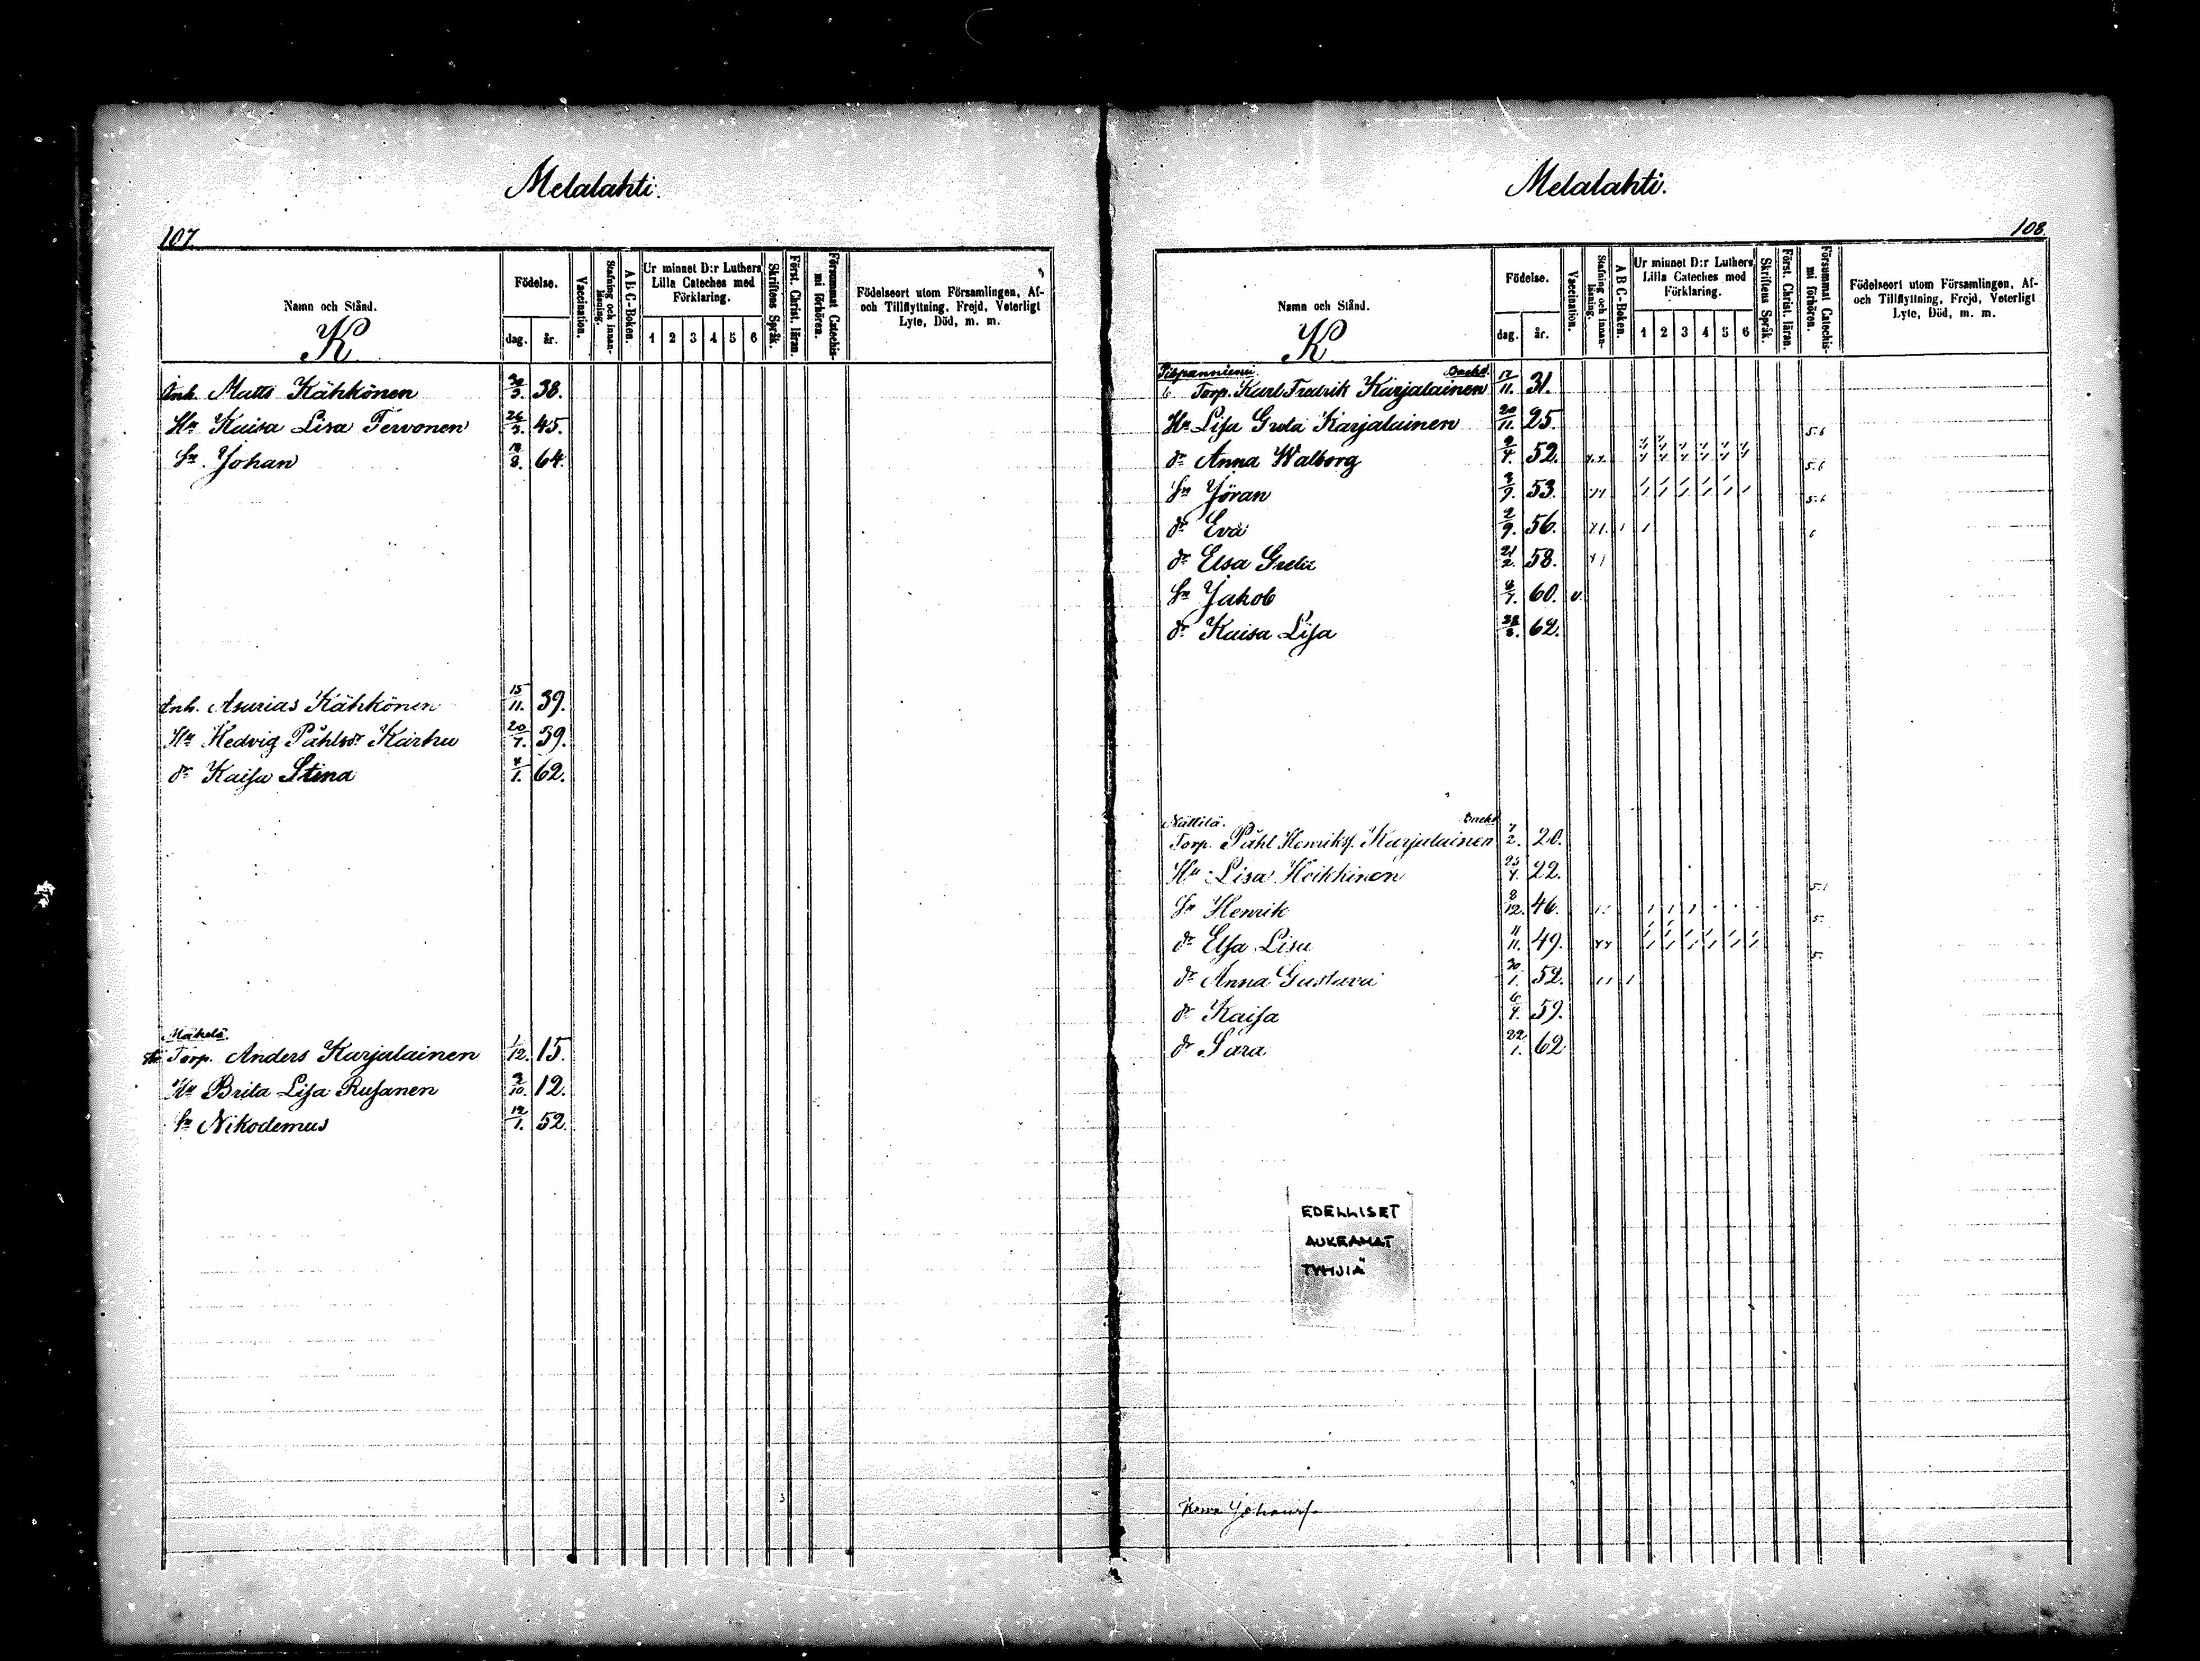 Melalahti.
107
Namn och Stånd.
K
Födelse.
dag. år.
Vaccination.
Stafning och innan-läsning.
A B C-Boken.
Ur minnet D:r Luthers Lilla Cateches med Förklaring.
1 2 3 4 5 6
Skriftens Språk.
Först. Christ. läran.
Försummat Catechis-mi förhören.
Födelseort utom Församlingen, Af- och Tillflyttning, Frejd, Veterligt Lyte, Död, m. m.
Inh. Matts Kähkönen 3. 38.
Hu Kaisa Lisa Tervonen 26/3. 45.
Sn. Johan 8. 64.
Inh. Asarias Kähkönen 15/11. 39.
Hu Hedvig Påhlsdr Karhu 20/7. 39.
dr Kaisa Stina 4/1. 62.
Mäkelä.
Torp. Anders Karjalainen 1/12. 15.
Hu Brita Lisa Rusanen 10. 12.
Sn Nikodemus 12/1. 52.
Melalahti.
108
Namn och Stånd.
K
Födelse.
dag. år.
Vaccination.
Stafning och innan-läsning.
A B C-Boken.
Ur minnet D:r Luthers Lilla Cateches med Förklaring.
1 2 3 4 5 6
Skriftens Språk.
Först. Christ. läran.
Försummat Catechis-mi förhören.
Födelseort utom Församlingen, Af- och Tillflyttning, Frejd, Veterligt Lyte, Död, m. m.
Torp. Karl Fredrik Karjalainen 11. 31.
Hu Lisa Greta Karjalainen 20/11. 25.
dr Anna Walborg 52. 5.6
Sn Jöran 53. 5.6
dr Eva 2/9. 56. 5.6
dr Elsa Greta 21/2. 58. 6
Sn Jakob 60. v.
dr Kaisa Lisa 62.
Nättilä.
Torp. Påhl Henrikss. Karjalainen 2. 20.
Hu Lisa Heikkinen 22.
Sn Henrik 8/12. 46.
dr Elsa Lisa 11/11. 49. 5.
dr Anna Gustava 30/1. 52. 5.
dr Kaisa 59.
dr Sara 22/1. 62
EDELLISET
AUKEAMAT
TYHJIÄ